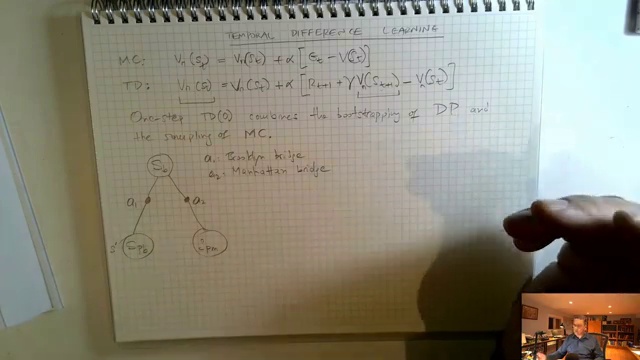 TEMPORAL DIFFERENCE LEARNING
MC: Vπ(St) = Vπ(St) + α [Gt − V(St)]
TD: Vπ(St) = Vπ(St) + α [Rt+1 + γVπ(St+1) − Vπ(St)]
One-step TD(0) combines the bootstrapping of DP and
the sampling of MC.
a1: Brooklyn bridge
a2: Manhattan bridge
a1 a2
s'